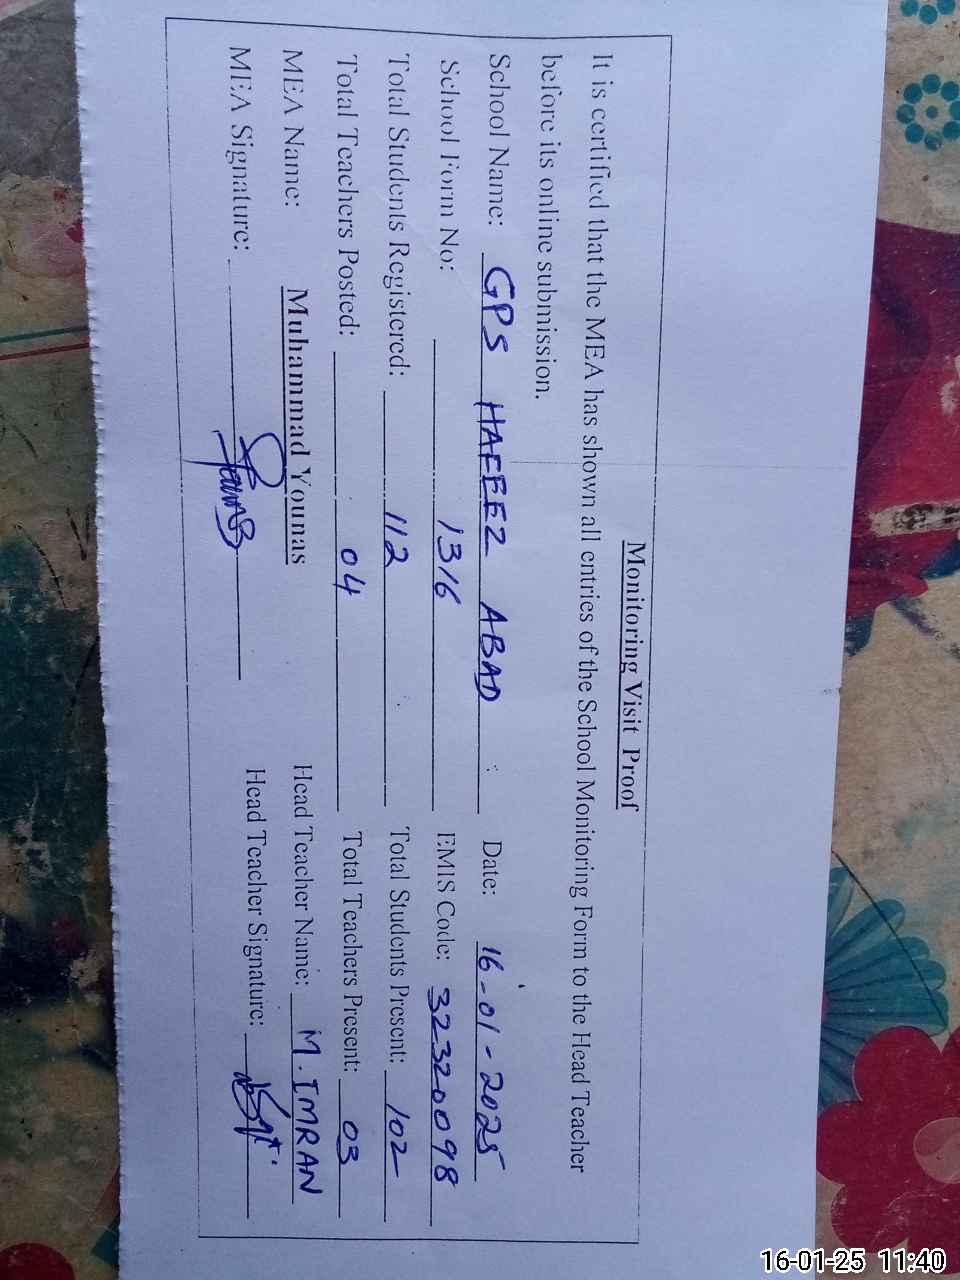 Monitoring Visit Proof
It is certified that the MEA has shown all entries of the School Monitoring Form to the Head Teacher
before its online submission.
School Name: GPS HAFEEZ ABAD Date: 16-01-2025
School Form No: 1316 EMIS Code: 32320098
Total Students Registered: 112 Total Students Present: 102
Total Teachers Posted: 04 Total Teachers Present: 03
MEA Name: Muhammad Younas Head Teacher Name: M. IMRAN
MEA Signature: Head Teacher Signature:
16-01-25 11:40